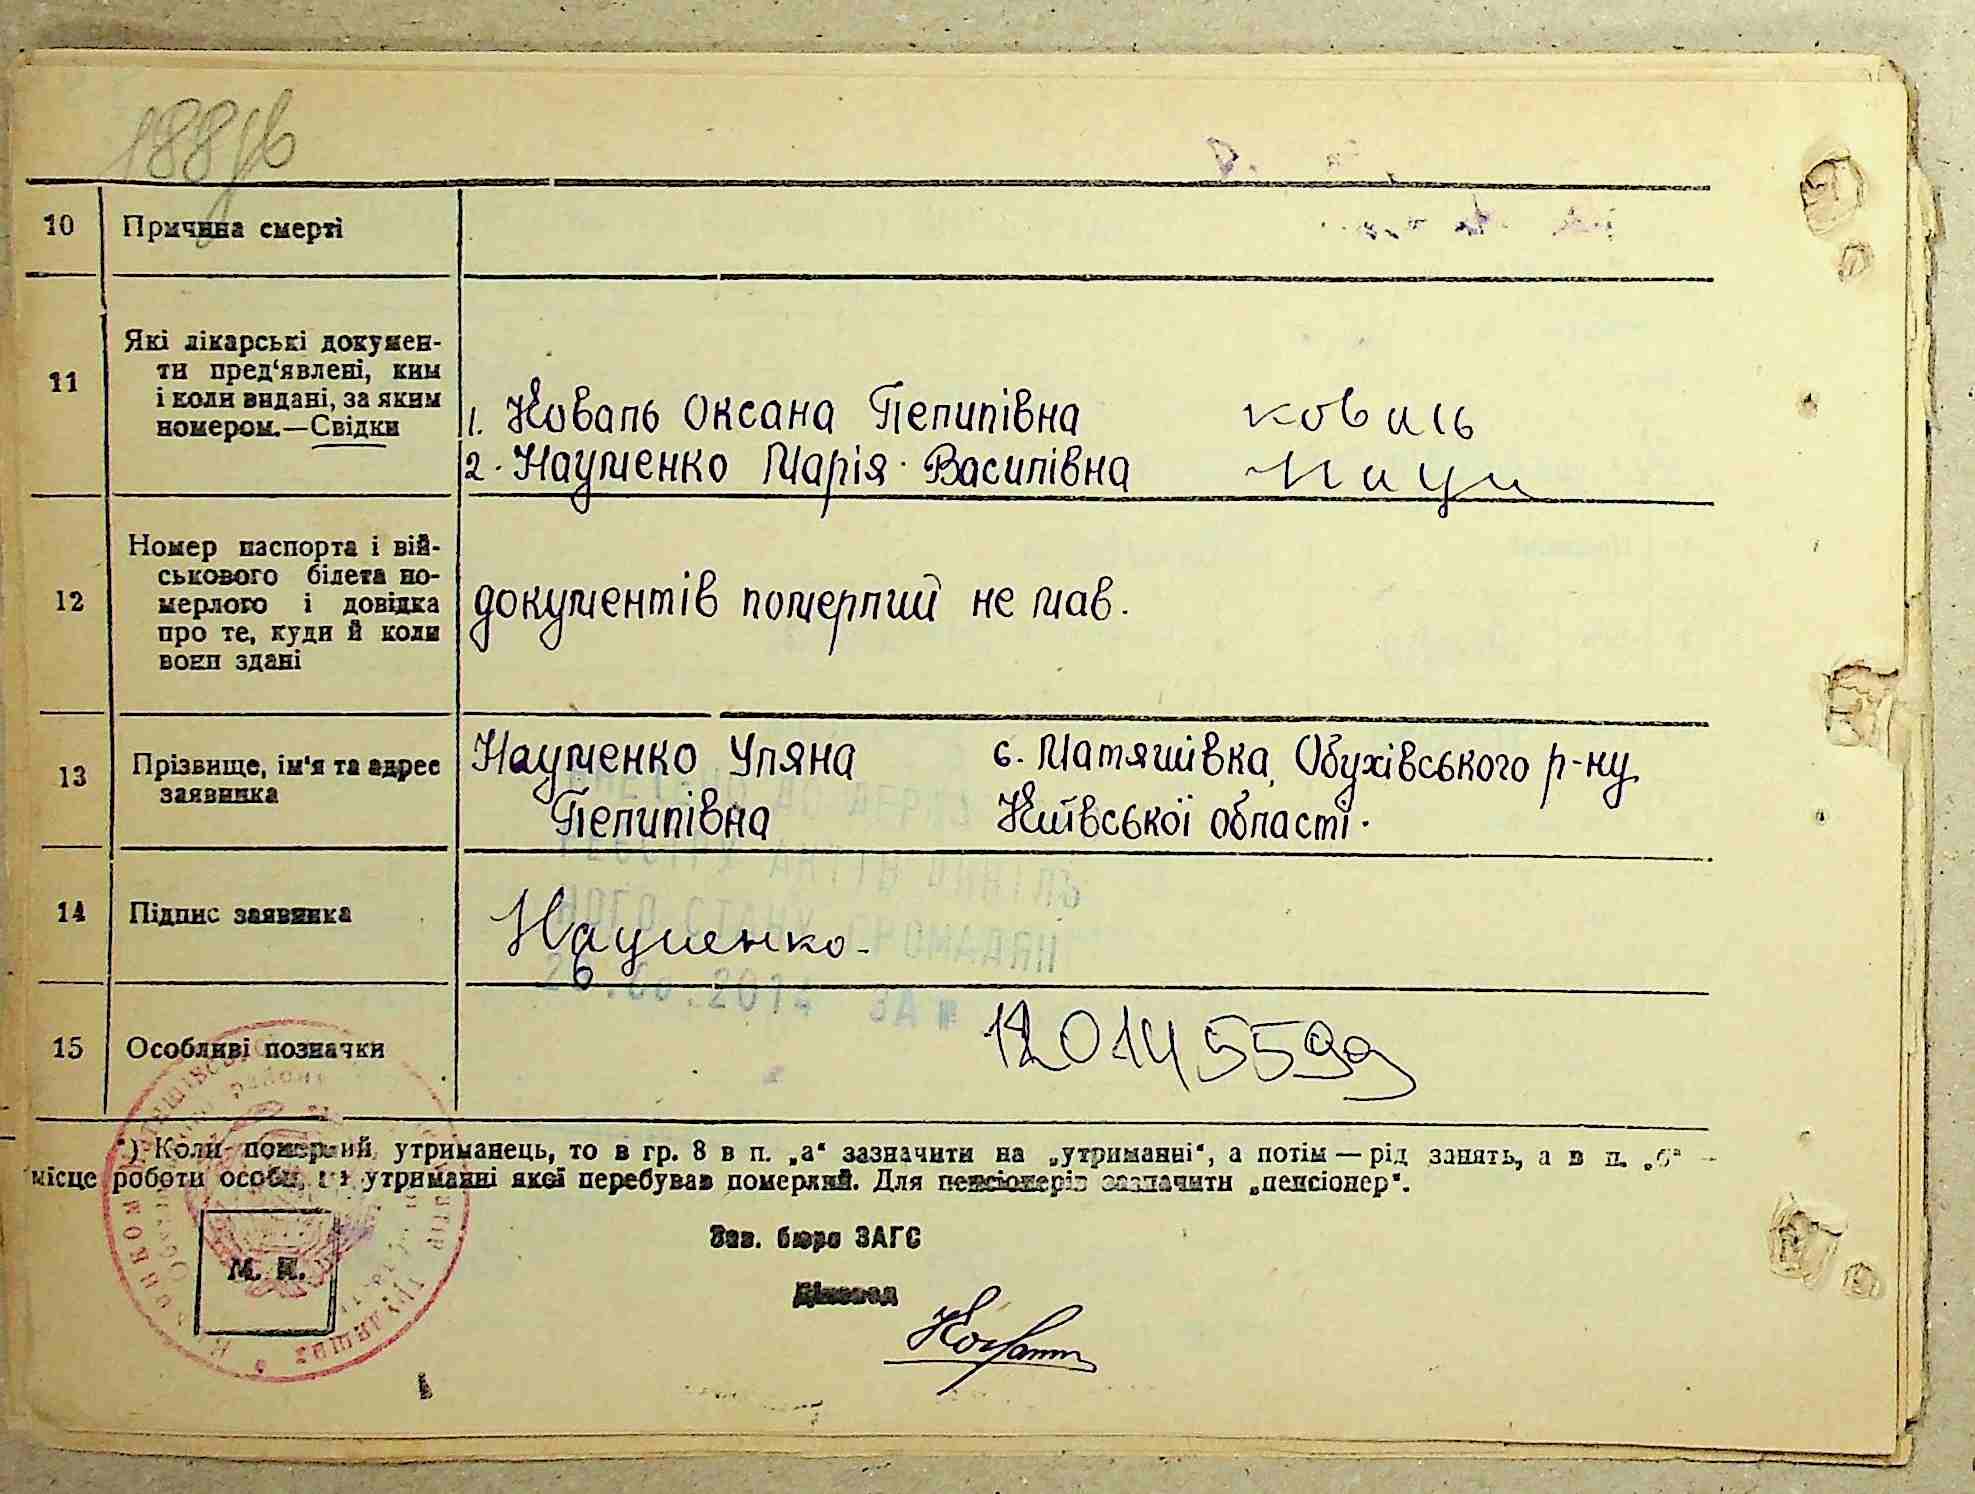 10 Причина смерті
11 Які лікарські докумен-
ти пред‘явлені, ким
і коли видані, за яким
номером.—Свідки
1. Коваль Оксана Пелипівна коваль
2. Науменко Марія Василівна
12 Номер паспорта і вій-
ськового білета по-
мерлого і довідка
про те, куди й коли
вони здані
документів померлий не мав.
13 Прізвище, ім‘я та адрес
заявника
Науменко Уляна с. Матяшівка, Обухівського р-ну
Пелипівна Київської області.
14 Підпис заявника
Науменко.
РЕЄСТРУ АКТІВ ЦИВІЛЬ
НОГО СТАНУ ГРОМАДЯН
2014 ЗА №
15 Особливі позначки
120145599
*) Коли померлий утриманець, то в гр. 8 в п. „а“ зазначити на „утриманні“, а потім — рід занять, а в п. „б“ —
місце роботи особи, на утриманні якої перебував померлий. Для пенсіонерів зазначити „пенсіонер“.
Зав. бюро ЗАГС
М. П.
Діловод